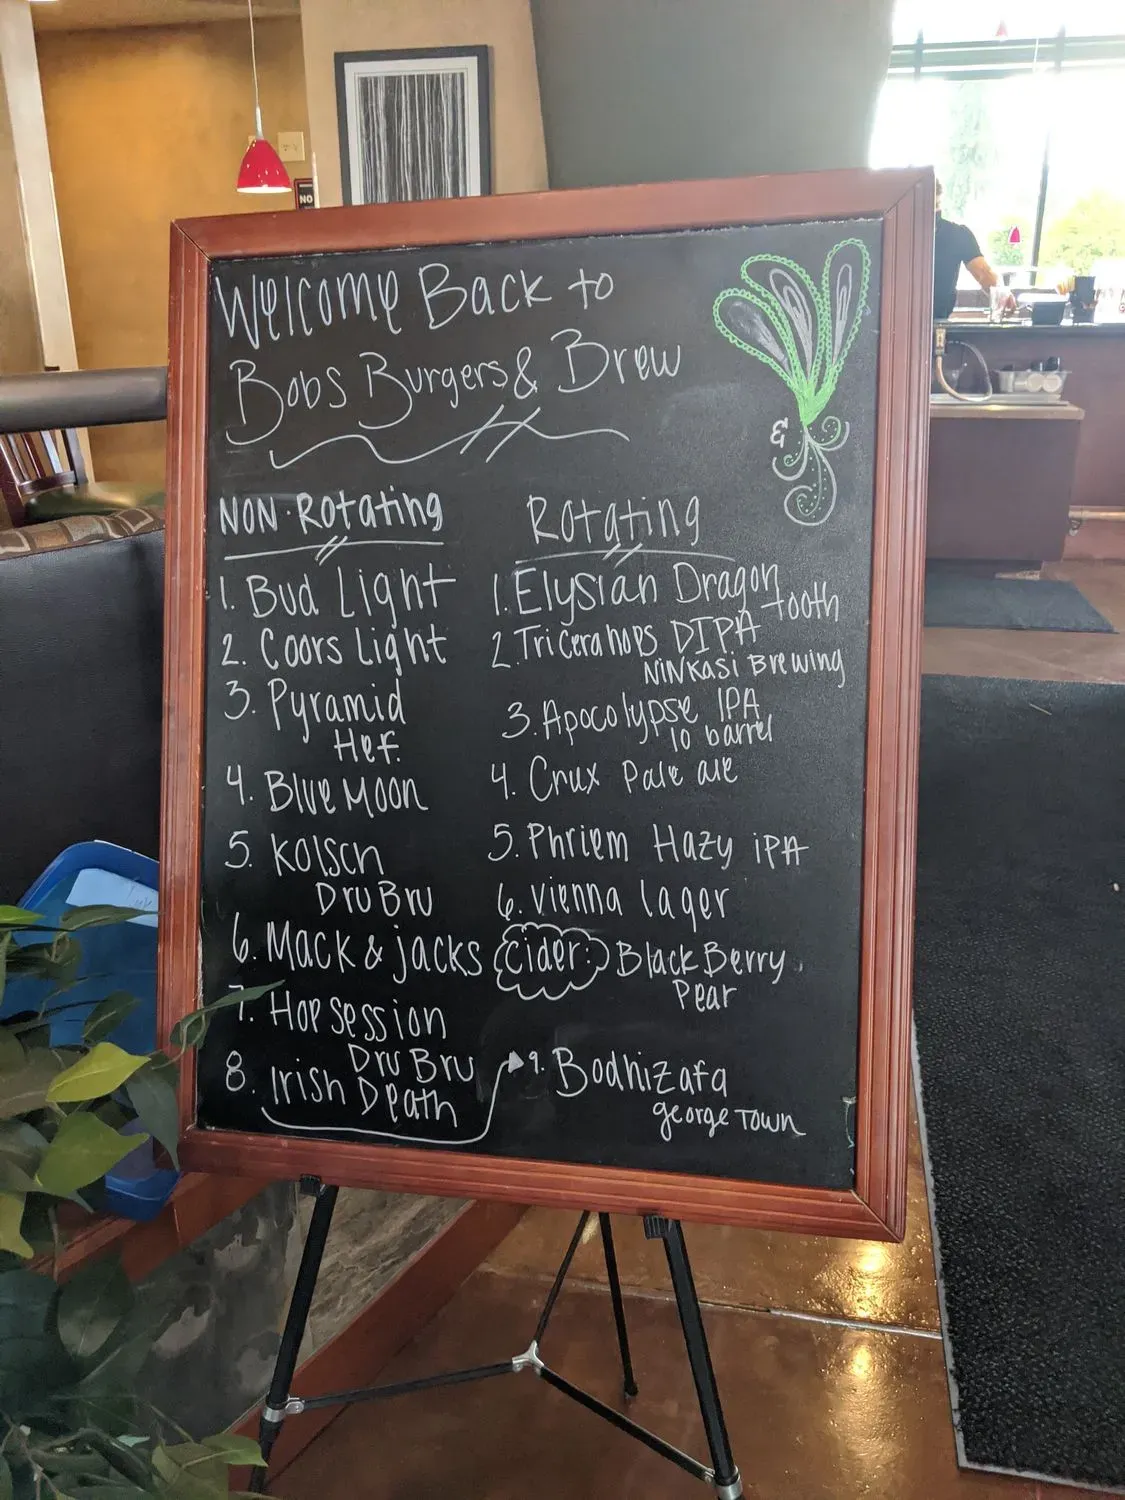 Welcome Back to
Bobs Burgers & Brew
NON-Rotating
1. Bud Light
2. Coors Light
3. Pyramid
Hef.
4. Blue Moon
5. Kolsch
Dru Bru
6. Mack & jacks
7. Hop Session
Dru Bru
8. Irish Death
Rotating
1. Elysian Dragon
tooth
2. Tricerahops DIPA
Ninkasi Brewing
3. Apocolypse IPA
10 barrel
4. Crux Pale ale
5. Phriem Hazy iPA
6. Vienna lager
Cider: BlackBerry
Pear
9. Bodhizafa
george Town
&
NO